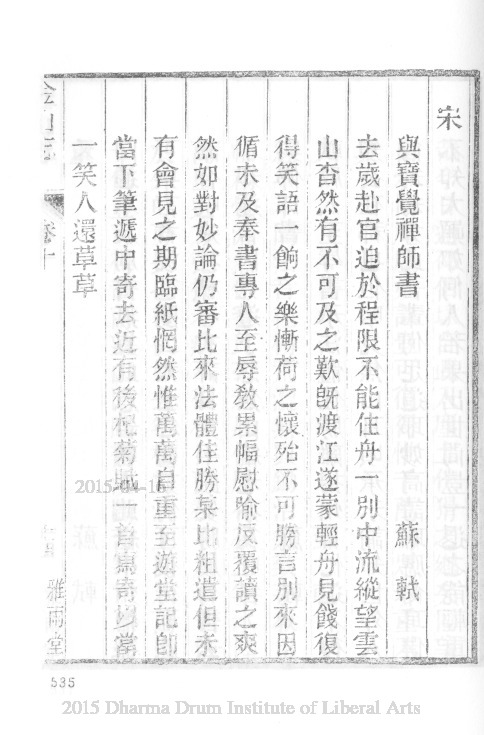 宋
與寶覺禪師書 蘇軾
去歲赴官迫於程限不能住舟一別中流縱望雲
山杳然有不可及之歎旣渡江遂蒙輕舟見餞復
得笑語一餉之樂慚荷之懷殆不可勝言別來因
循未及奉書專人至辱敎累幅慰喻反覆讀之爽
然如對妙論仍審比來法體佳勝某比粗遣但未
有會見之期臨紙惘然惟萬萬自重至遊堂記卽
當下筆遞中寄去近有後杞菊賦一首寫寄以當
一笑人還草草
金山志 卷十 雅雨堂
535
2015 Dharma Drum Institute of Liberal Arts